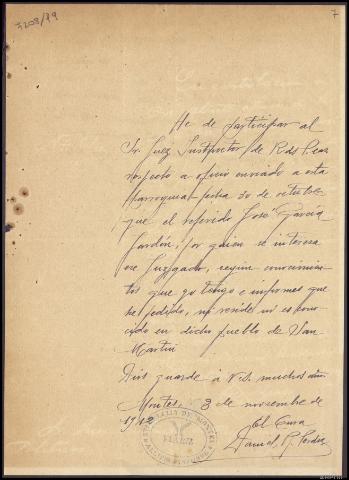 3208/99
7
He de participar al
Sr. Juez Instructor de
respecto a oficio enviado a esta
Parroquia fecha 30 de octubre
que el referido Jose García
por quien se interesa
ese Juzgado, según conocimien
tos que yo tengo e informes que
he pedido, no reside ni es cono
cido en dicho pueblo de San
Martin
Dios guarde a Vd. muchos
3 de noviembre de
El Cura
Daniel